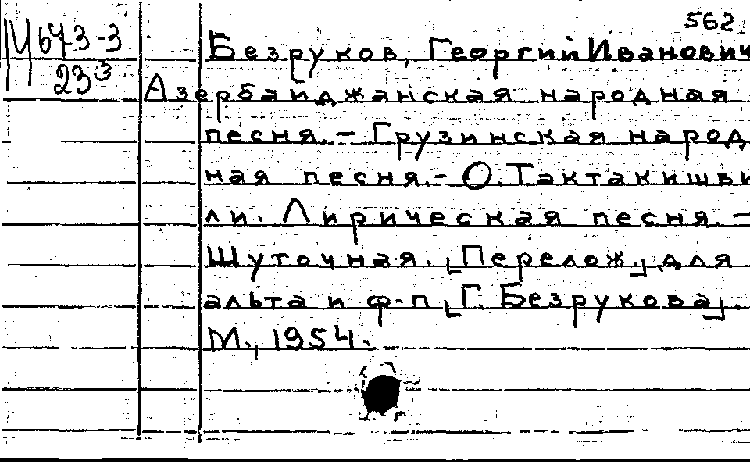 562
М 64 3-3
23³
Безруков, Георгий Иванович
Азербайджанская народная
песня. – Грузинская народ
ная песня. – О. Тактакишви
ли. Лирическая песня. –
Шуточная. [Перелож.] для
альта и ф-п [Г. Безрукова].
М., 1954.